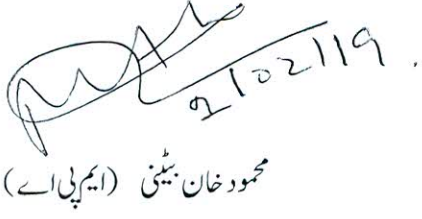 2/02/19.
محمود خان بیٹنی (ایم پی اے)